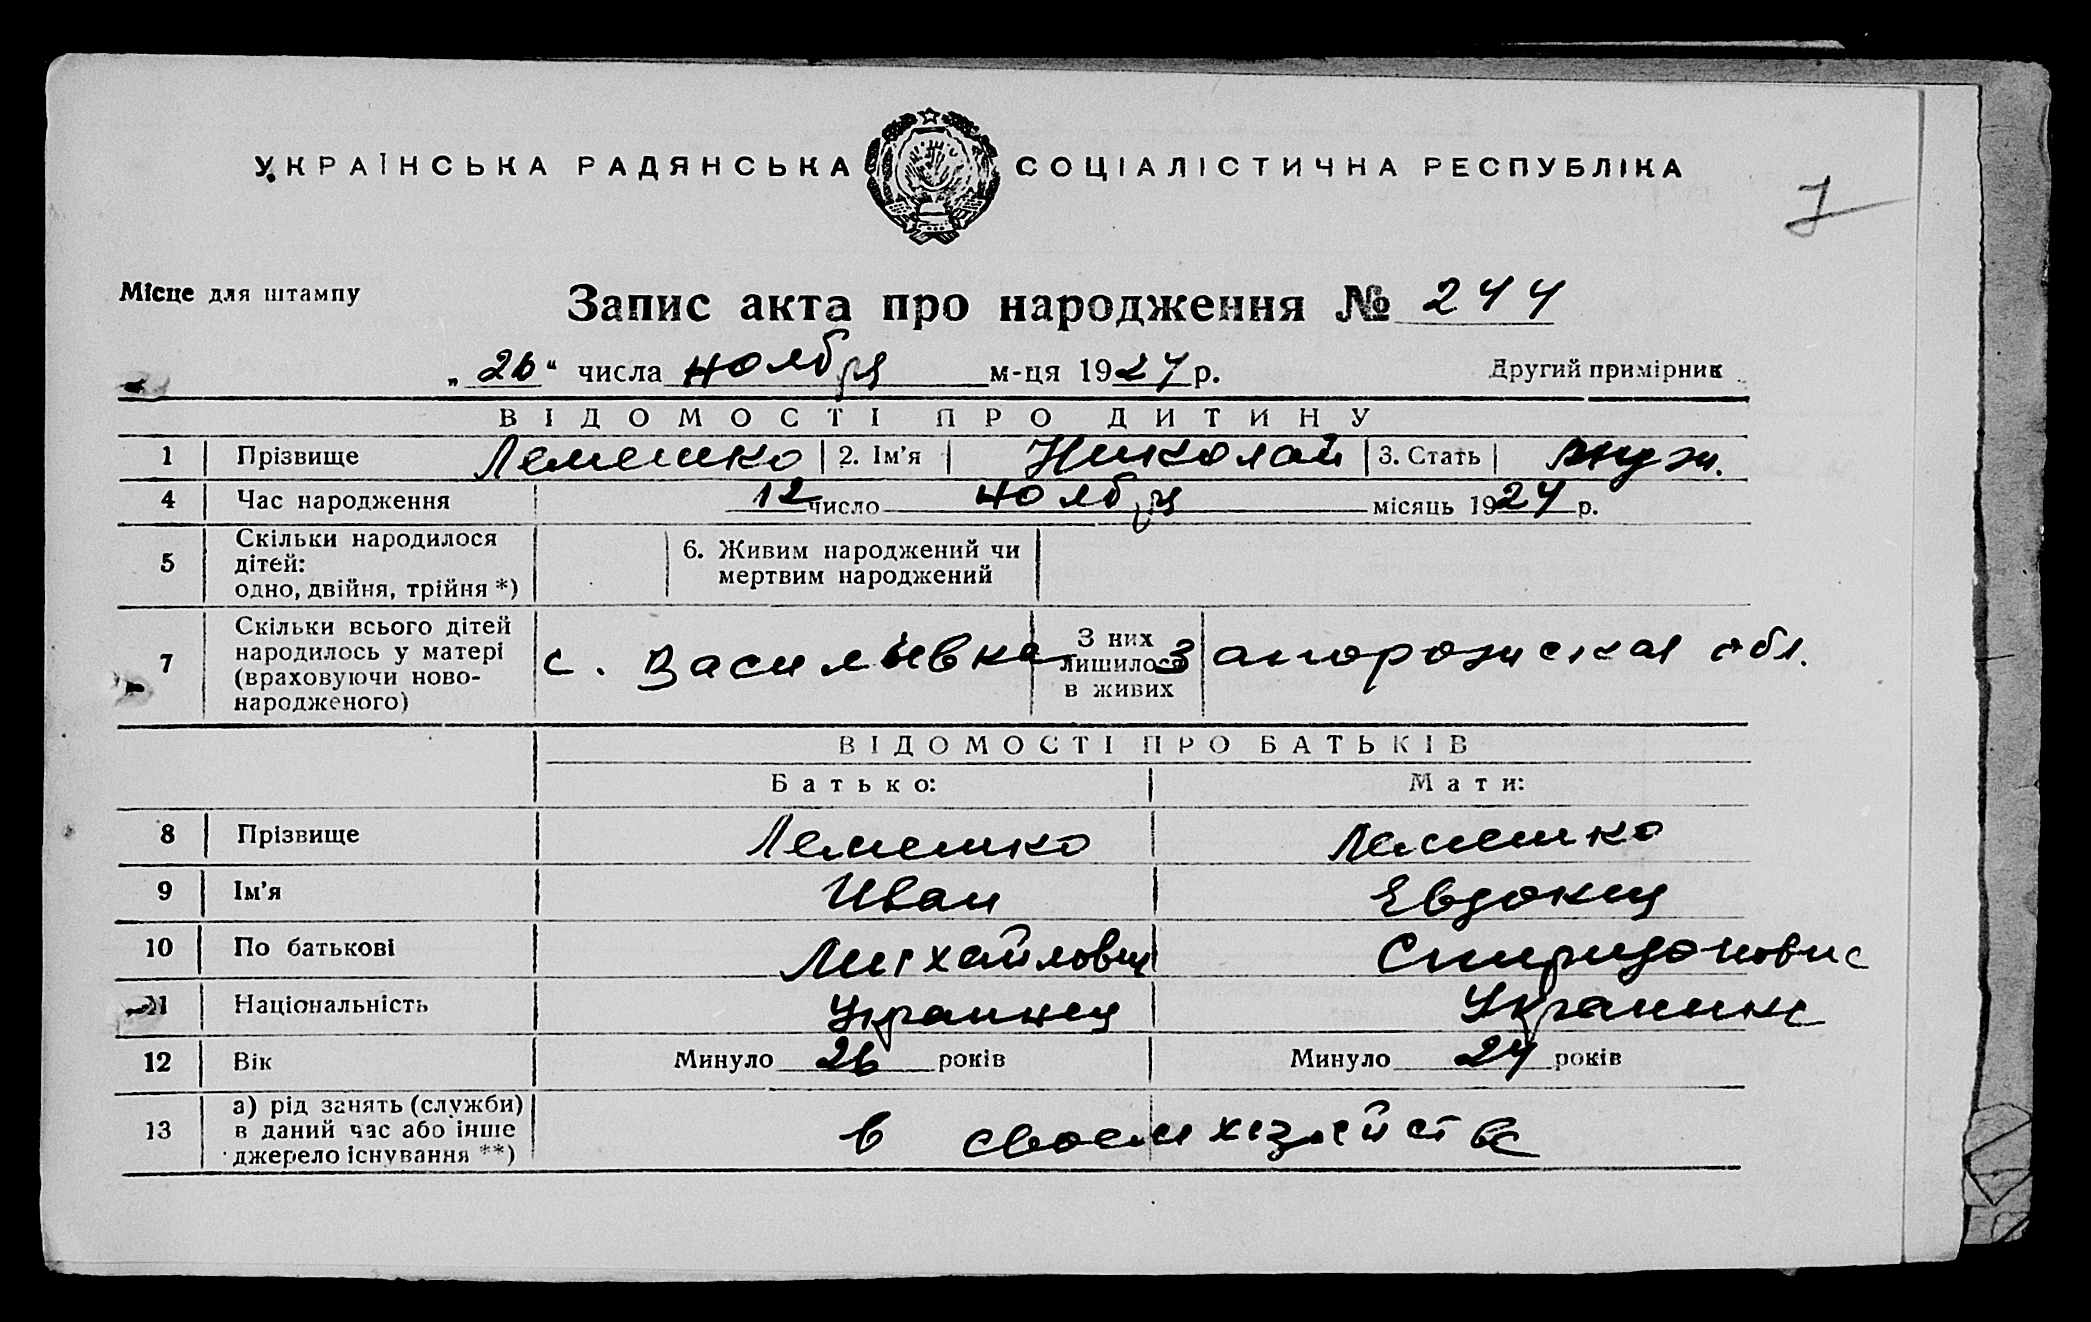 УКРАЇНСЬКА РАДЯНСЬКА СОЦІАЛІСТИЧНА РЕСПУБЛІКА
7
Місце для штампу
Запис акта про народження № 244
„26“ числа ноября м-ця 1924 р.
Другий примірник
ВІДОМОСТІ ПРО ДИТИНУ
1 Прізвище Лемешко 2. Ім'я Николай 3. Стать муж.
4 Час народження 12 число ноября місяць 1924 р.
5 Скільки народилося дітей: одно, двійня, трійня *) 6. Живим народжений чи мертвим народжений
7 Скільки всього дітей народилось у матері (враховуючи ново-народженого) З них лишилось в живих
с. Васильевка Запорожская обл.
ВІДОМОСТІ ПРО БАТЬКІВ
Батько: Мати:
8 Прізвище Лемешко Лемешко
9 Ім'я Иван Евдокия
10 По батькові Михайлович Спиридоновна
11 Національність Украинец Украинка
12 Вік Минуло 26 років Минуло 24 років
13 а) рід занять (служби) в даний час або інше джерело існування **) в своем хозяйстве